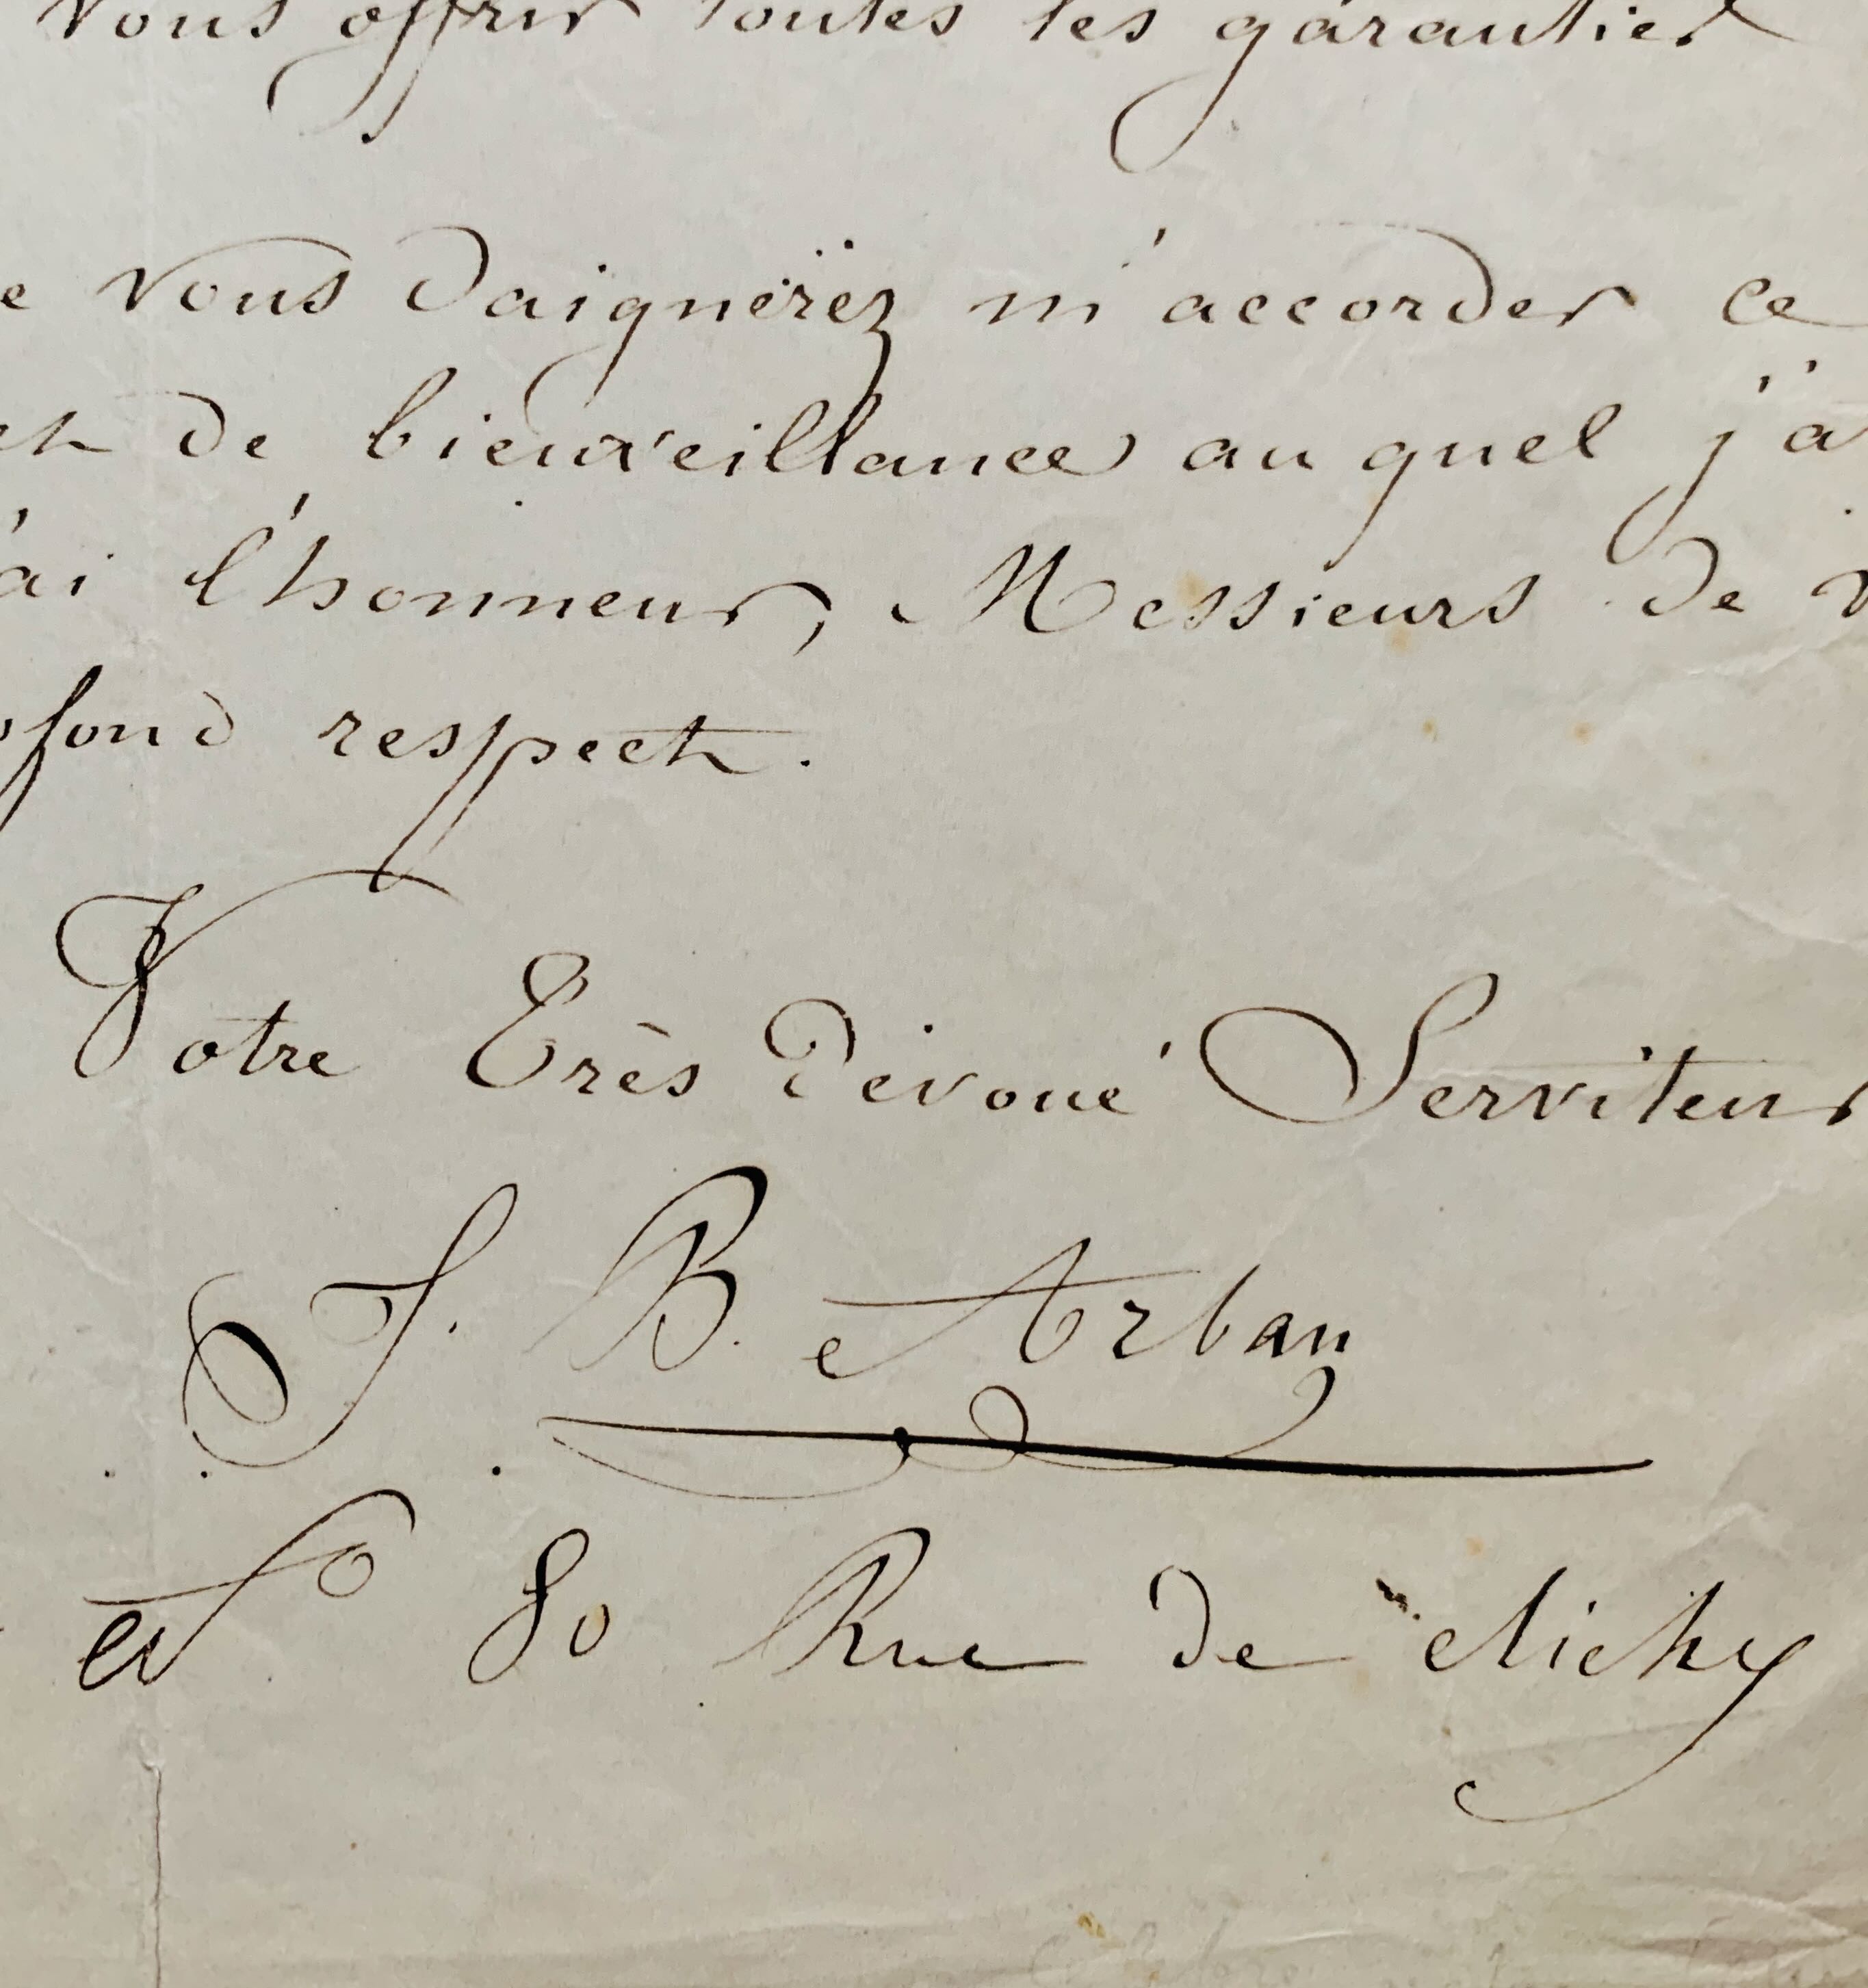 vous offrir toutes les garanties
e vous daignerez m'accorder ce
de bienveillance au quel j'a
'ai l'honneur, Messieurs de v
ofond respect.
Votre Très Dévoué Serviteur
J. B. Arban
No 80 Rue de clichy